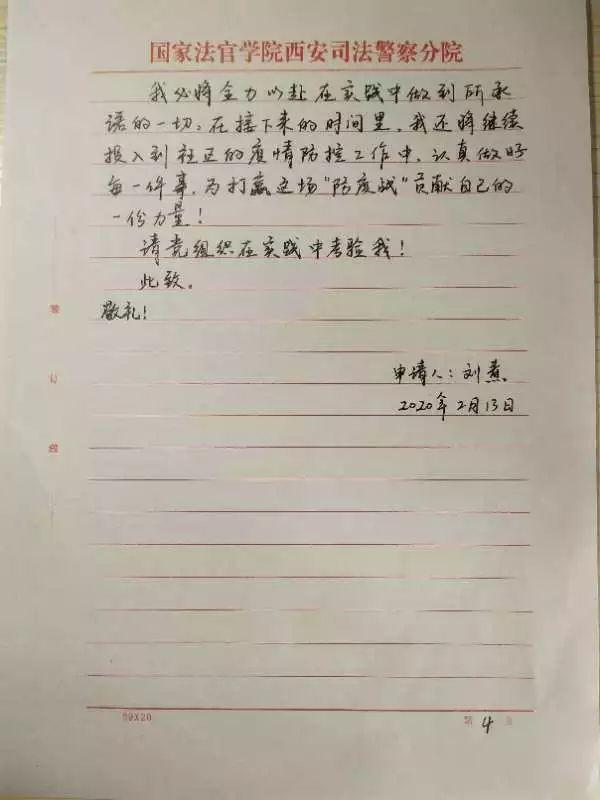 国家法官学院西安司法警察分院
我必将全力以赴在实践中做到所承
诺的一切。在接下来的时间里,我还将继续
投入到社区的疫情防控工作中,认真做好
每一件事,为打赢这场"防疫战"贡献自己的
一份力量!
请党组织在实践中考验我!
此致。
敬礼!
装
订
线
申请人:刘
2020年2月13日
第 4 页